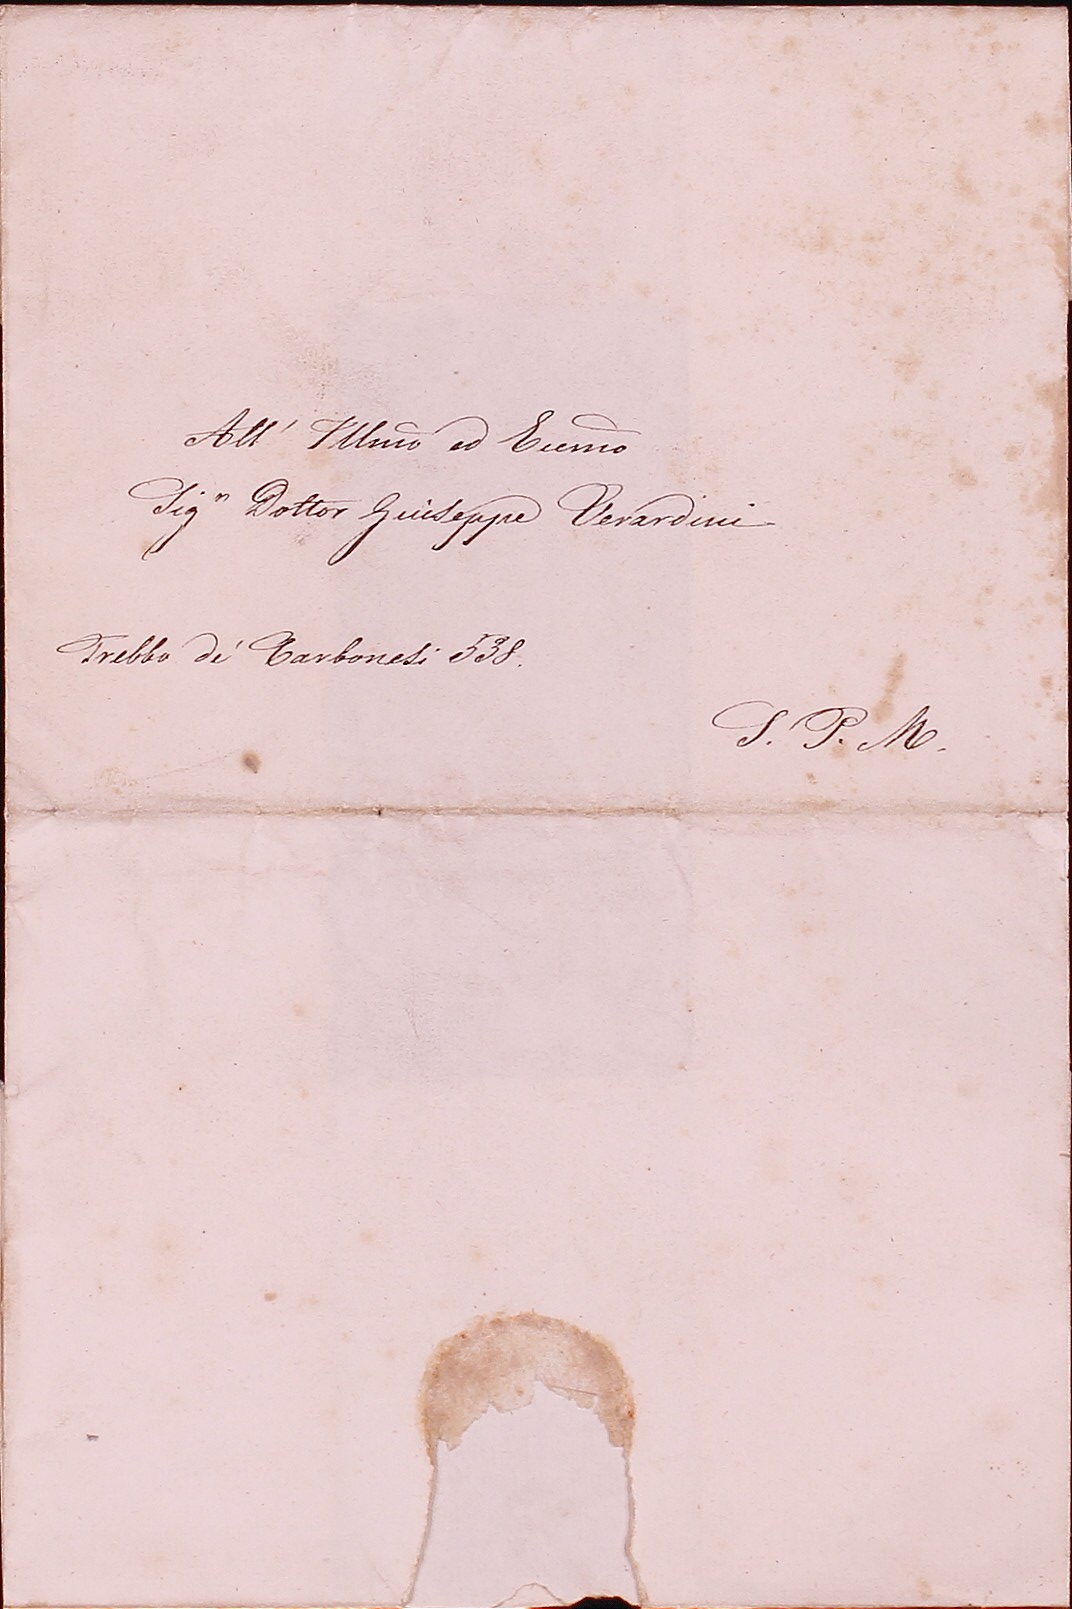 All' Illmo ed Eccmo
Sigr Dottor Giuseppe Verardini
Trebbo de' Carbonesi 538.
S. P. M.